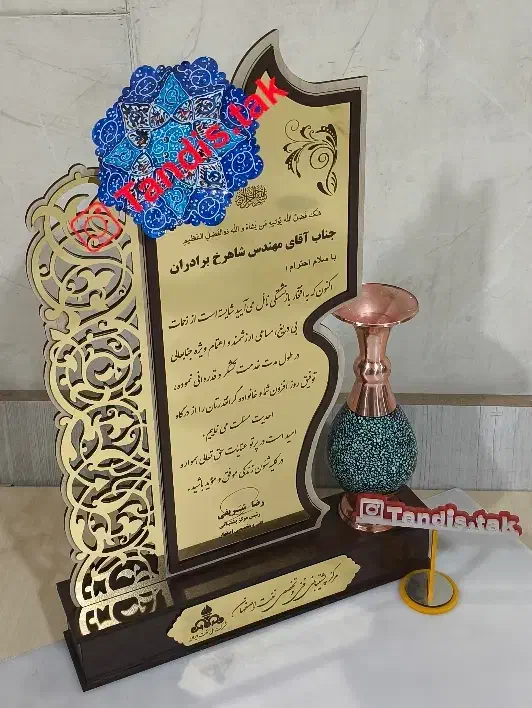 Tandis.tak
ذلک فضل الله یؤتیه من یشاء و الله ذوالفضل العظیم
جناب آقای مهندس شاهرخ برادران
با سلام احترام ؛
اکنون که به افتخار بازنشستگی نائل می‌آیید شایسته است از زحمات
بی دریغ، مساعی ارزشمند و اهتمام ویژه جنابعالی
در طول مدت خدمت تشکر و قدردانی نموده،
توفیق روز افزون شما و خانواده گرانقدرتان را از درگاه
احدیت مسئلت می نماییم.
امید است در پرتو عنایات حق تعالی همواره
در کلیه شئون زندگی موفق و مؤید باشید.
رضا شریفی
Tandis.tak
مرکز پشتیبانی فنی و تخصصی نفت اصفهان
شرکت ملی نفت ایران